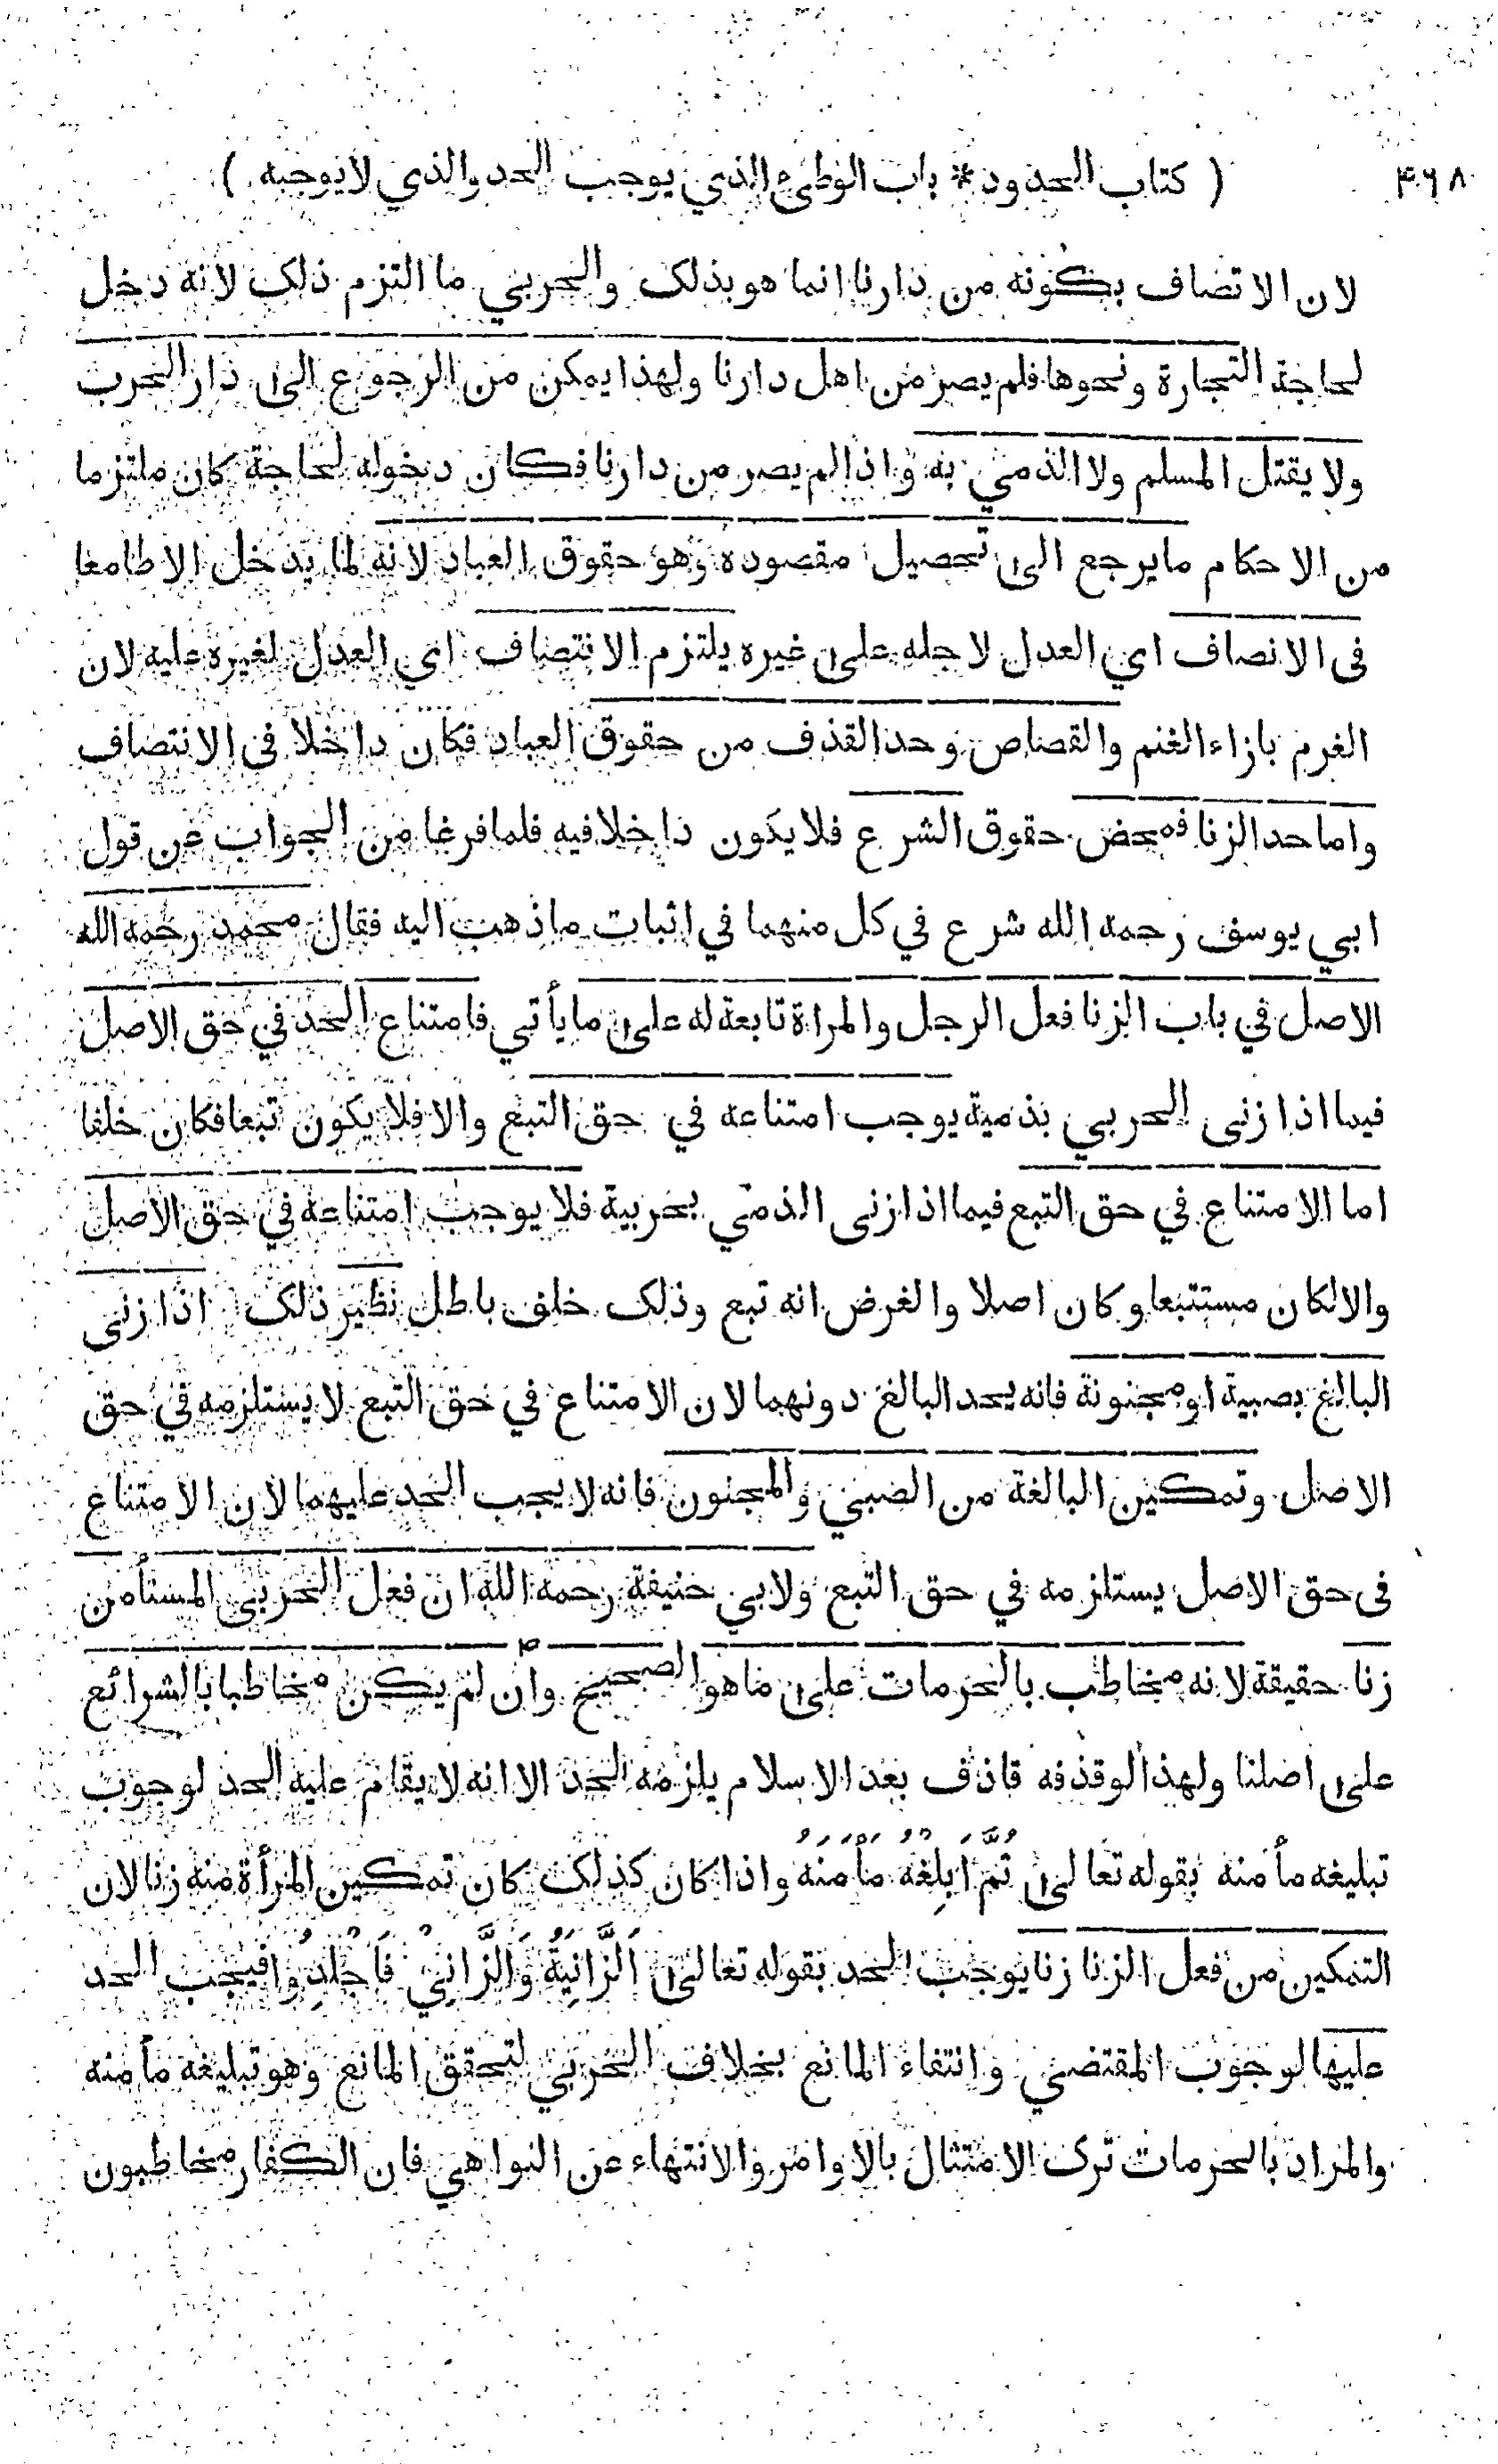 ۴۶۸ ( كتاب الحدود * باب الوطئ الذي يوجب الحد والذي لا يوجبه )
لان الاتصاف بكونه من دارنا انما هو بذلك والحربي ما التزم ذلك لانه دخل
لحاجة التجارة ونحوها فلم يصر من اهل دارنا ولهذا يمكن من الرجوع الى دار الحرب
ولا يقتل المسلم ولا الذمي به واذا لم يصر من دارنا فكان دخوله لحاجة كان ملتزما
من الاحكام ما يرجع الى تحصيل مقصوده وهو حقوق العباد لانه لما يدخل الا طامعا
فى الانصاف اي العدل لاجله على غيره يلتزم الانتصاف اي العدل لغيره عليه لان
الغرم بازاء الغنم والقصاص وحد القذف من حقوق العباد فكان داخلا فى الانتصاف
واما حد الزنا فمحض حقوق الشرع فلا يكون داخلا فيه فلما فرغا من الجواب عن قول
ابي يوسف رحمه الله شرع في كل منهما في اثبات ما ذهب اليه فقال محمد رحمه الله
الاصل في باب الزنا فعل الرجل والمراة تابعة له على ما يأتي فامتناع الحد في حق الاصل
فيما اذا زنى الحربي بذمية يوجب امتناعه في حق التبع والا فلا يكون تبعا فكان خلفا
اما الامتناع في حق التبع فيما اذا زنى الذمي بحربية فلا يوجب امتناعه في حق الاصل
والا لكان مستتبعا وكان اصلا والغرض انه تبع وذلك خلف باطل نظير ذلك اذا زنى
البالغ بصبية او مجنونة فانه يحد البالغ دونهما لان الامتناع في حق التبع لا يستلزمه في حق
الاصل وتمكين البالغة من الصبي والمجنون فانه لا يجب الحد عليهما لان الامتناع
فى حق الاصل يستلزمه في حق التبع ولابي حنيفة رحمه الله ان فعل الحربي المستأمن
زنا حقيقة لانه مخاطب بالحرمات على ما هو الصحيح وان لم يكن مخاطبا بالشرائع
على اصلنا ولهذا لو قذفه قاذف بعد الاسلام يلزمه الحد الا انه لا يقام عليه الحد لوجوب
تبليغه مأمنه بقوله تعالى ثُمَّ اَبْلِغْهُ مَأْمَنَهُ واذا كان كذلك كان تمكين المرأة منه زنا لان
التمكين من فعل الزنا زنا يوجب الحد بقوله تعالى اَلزَّانِيَةُ وَالزَّانِيْ فَاجْلِدُوا فيجب الحد
عليها لوجوب المقتضي وانتفاء المانع بخلاف الحربي لتحقق المانع وهو تبليغه مأمنه
والمراد بالحرمات ترك الامتثال بالاوامر والانتهاء عن النواهي فان الكفار مخاطبون